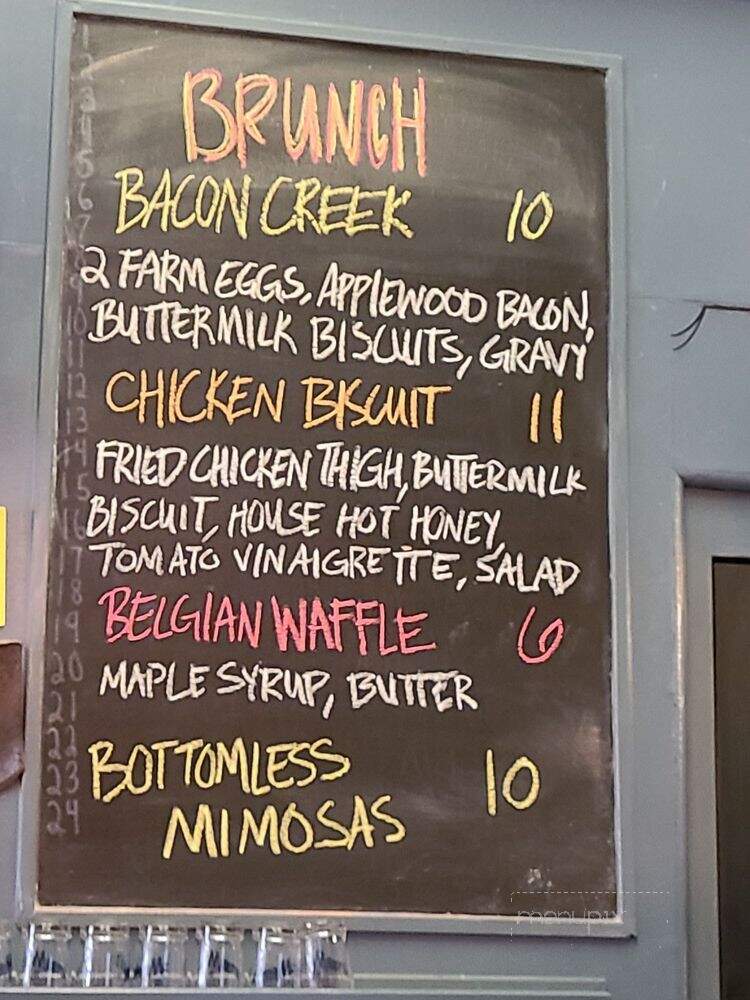 BRUNCH
BACON CREEK 10
2 FARM EGGS, APPLEWOOD BACON,
BUTTERMILK BISCUITS, GRAVY
CHICKEN BISCUIT 11
FRIED CHICKEN THIGH, BUTTERMILK
BISCUIT, HOUSE HOT HONEY,
TOMATO VINAIGRETTE, SALAD
BELGIAN WAFFLE 6
MAPLE SYRUP, BUTTER
BOTTOMLESS 10
MIMOSAS
1
2
3
4
5
6
7
10
11
12
13
14
15
16
17
18
19
20
21
22
23
24
menupix